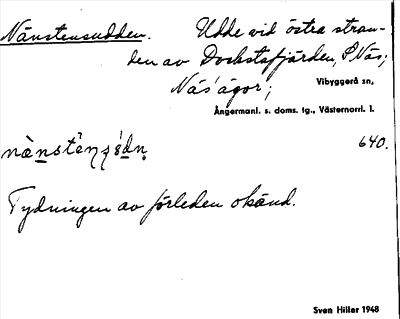 Nänstensudden. Udde vid östra stran-
den av Dockstafjärden, S Näs;
Näs' ägor; Vibyggerå sn,
Ångermanl. s. doms. tg., Västernorrl. l.
640.
Tydningen av förleden okänd.
Sven Hiller 1948